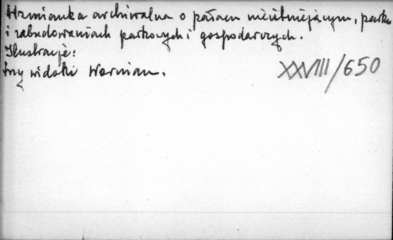 Wzmianka archiwalna o pałacu nieistniejącym, parku
i zabudowaniach parkowych i gospodarczych.
Ilustracje:
trzy widoki Warnian.
XXVIII/650